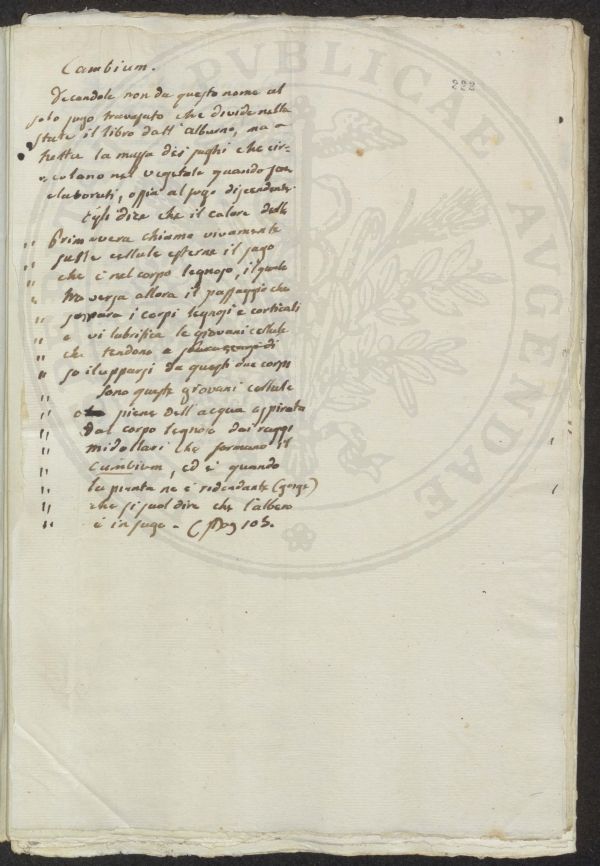 222
Cambium.
Decandole non da questo nome al
solo sugo travasato che divide nella
state il libro dall' alburno, ma a
tutta la massa dei sughi che cir-
colano nel vegetale quando son
elaborati, ossia al sugo discendente.
Egli dice che il calore della
" Primavera chiama vivamente
" sulle cellule esterne il sugo
" che è nel corpo legnoso, il quale
" traversa allora il passaggio che
" separa i corpi legnosi e corticali
" e vi lubrifica le giovani cellule
" che tendono a
" svilupparsi da questi due corpi
" Sono queste giovani cellule
" piene dell' acqua aspirata
" dal corpo legnoso dai raggi
" midollari che formano il
" Cambium, ed è quando
" la pianta ne è ridondante (gorge)
" che si suol dire che l'albero
" è in sugo - (pag 105.
PUBLICAE
AUGENDAE